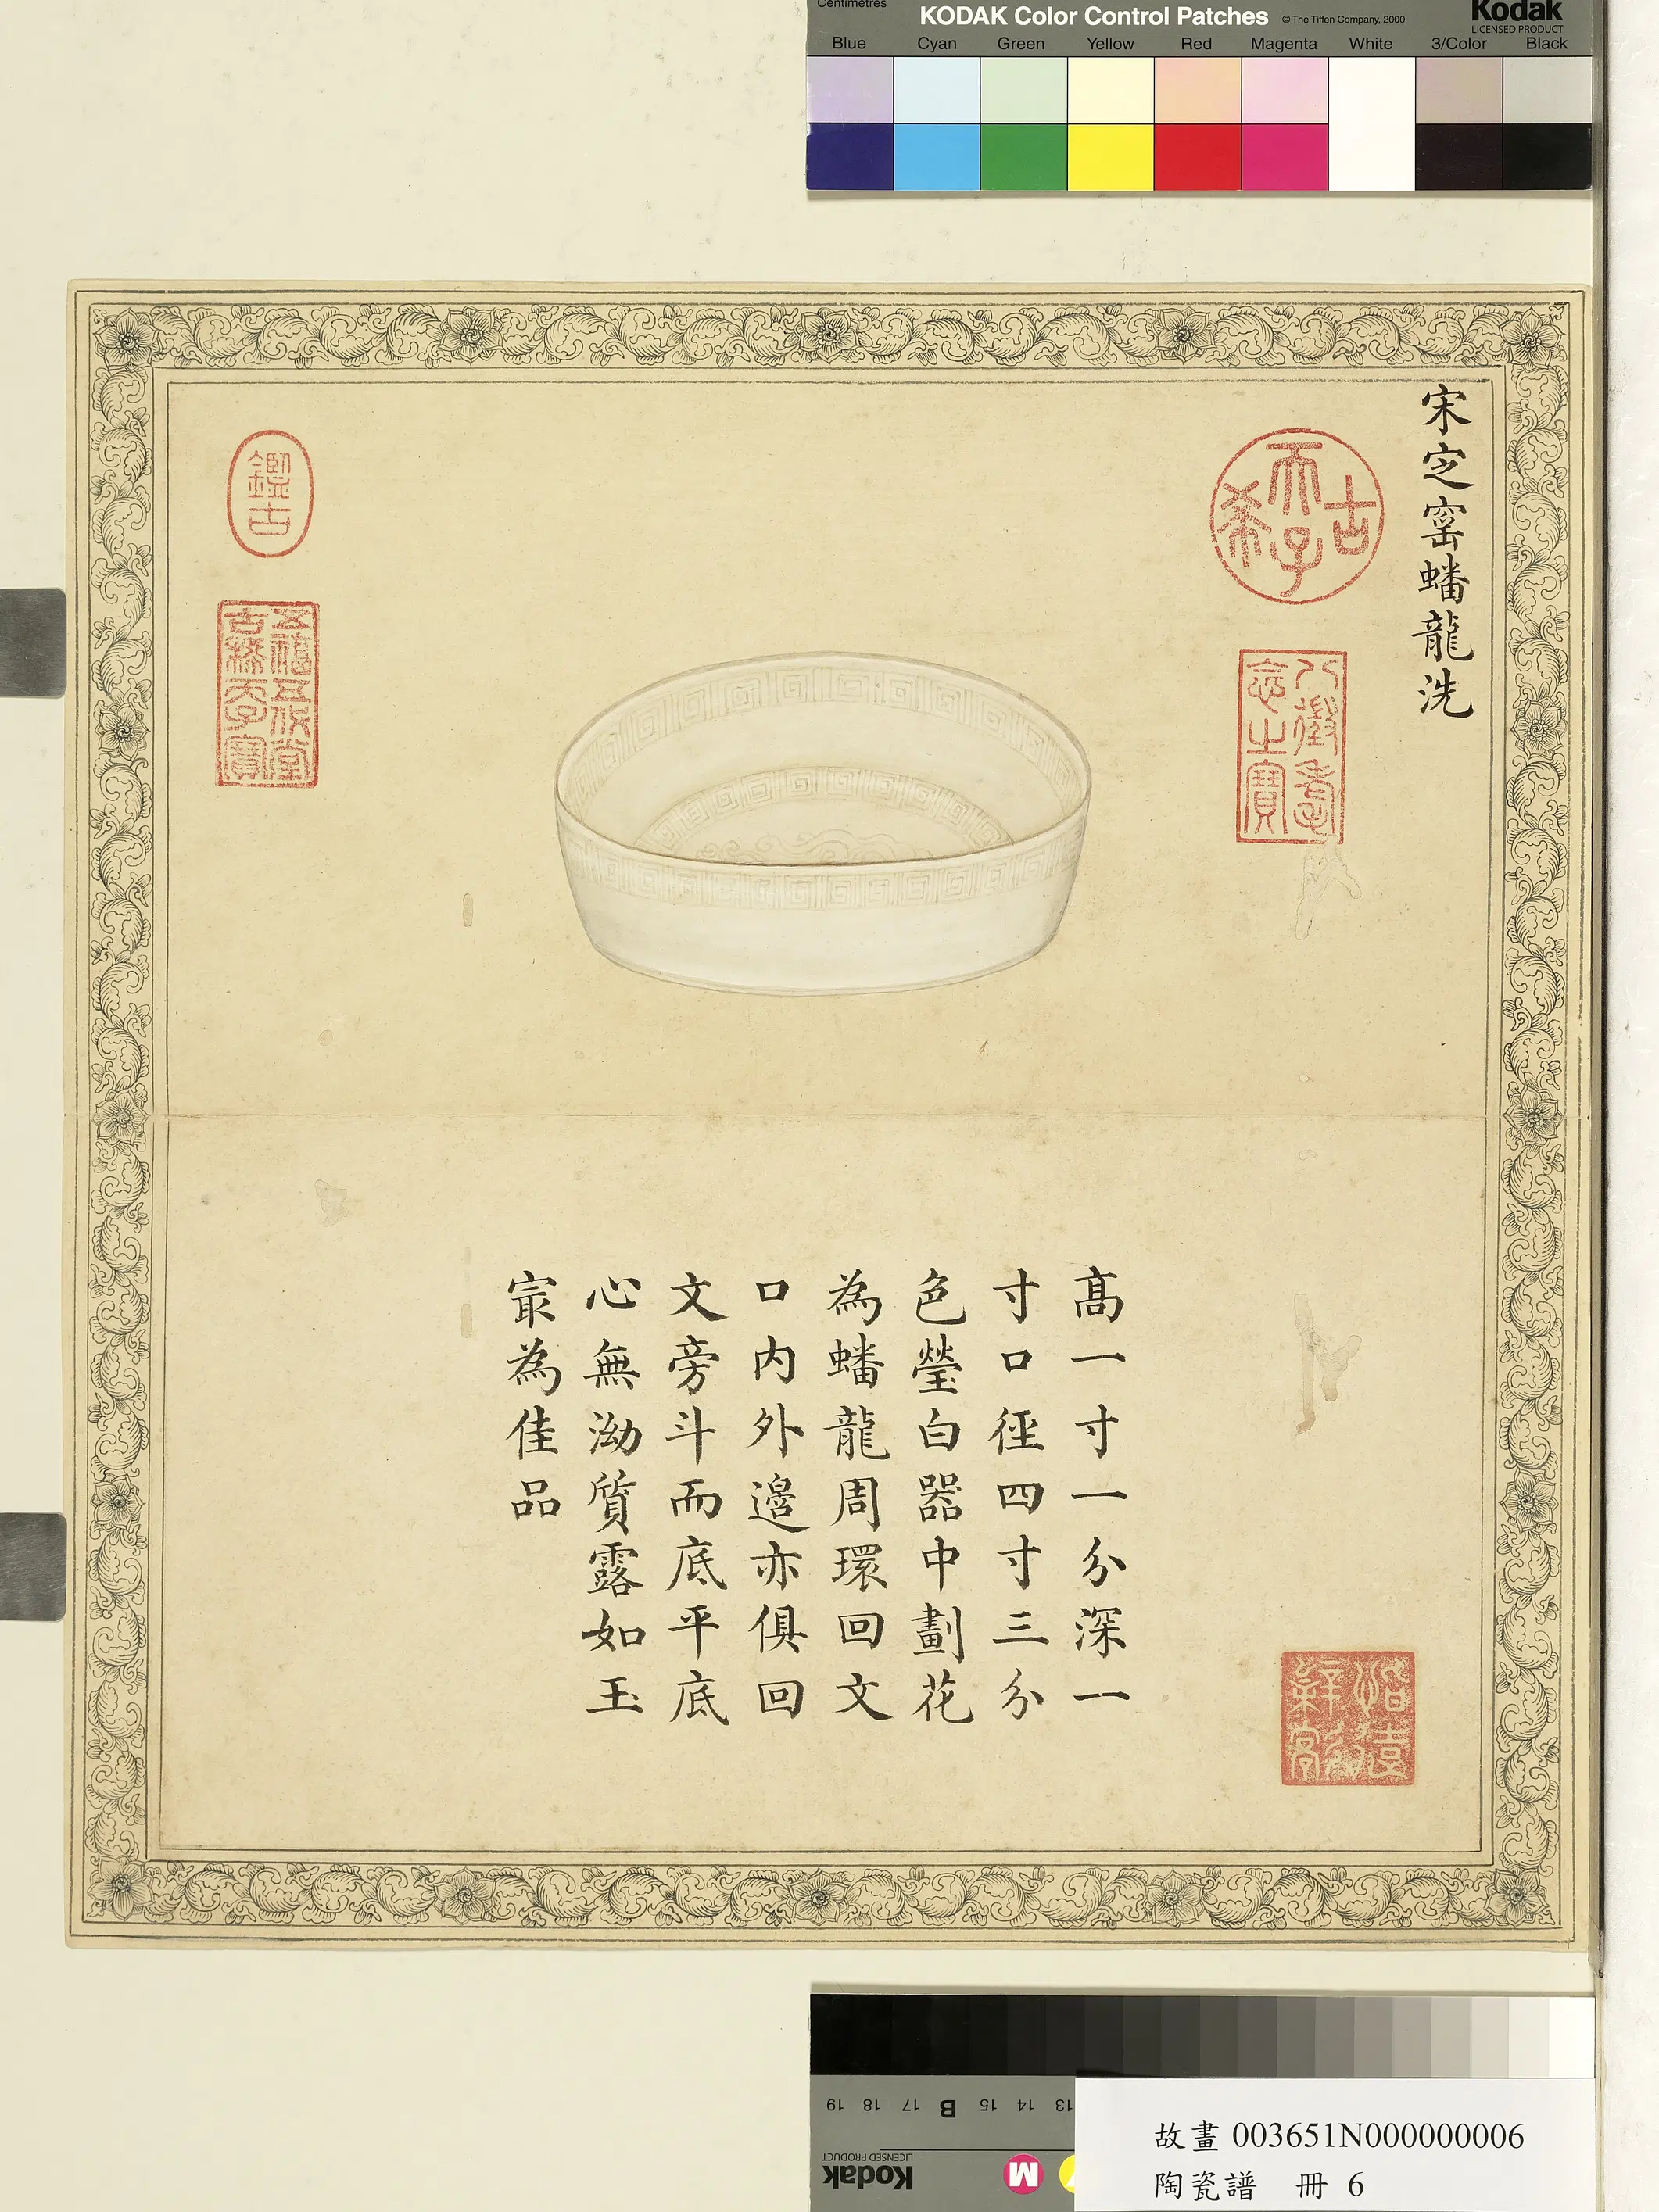 Centimetres
KODAK Color Control Patches
© The Tiffen Company, 2000
Kodak
LICENSED PRODUCT
Blue Cyan Green Yellow Red Magenta White 3/Color Black
宋定窰蟠龍洗
古希天子
八徵耄念之寶
鑑古
五福五代堂古稀天子寶
高一寸一分深一
寸口徑四寸三分
色瑩白器中劃花
為蟠龍周環回文
口内外邊亦俱回
文旁斗而底平底
心無泑質露如玉
㝡為佳品
13 14 15 B 17 18 19
LICENSED PRODUCT
Kodak
M
故畫 003651N000000006
陶瓷譜 冊 6